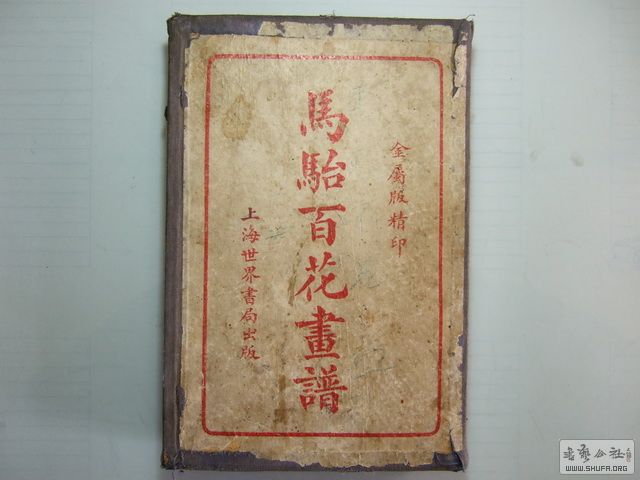 金屬版精印
馬駘百花畫譜
上海世界書局出版
書法公社
WWW.SHUFA.ORG